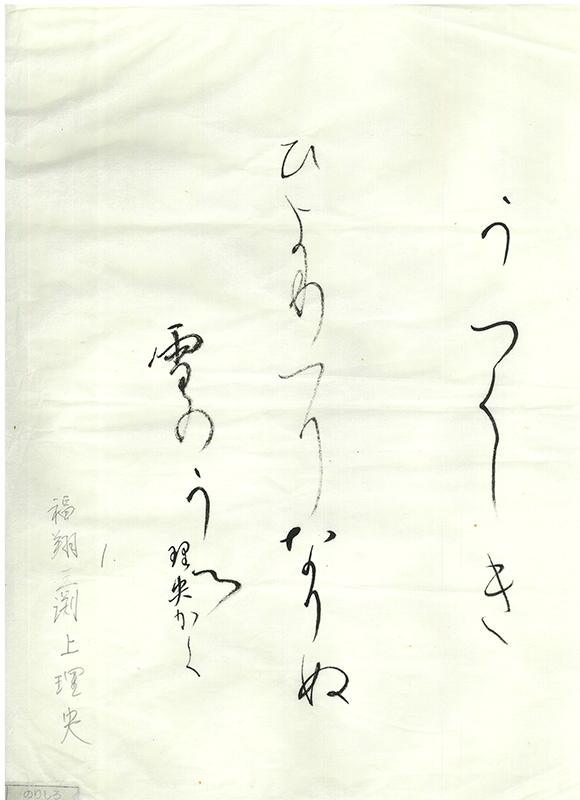 うつくしき
ひよりになりぬ
雪のうへ
理央かく
福翔 二 渕上理央
のりしろ